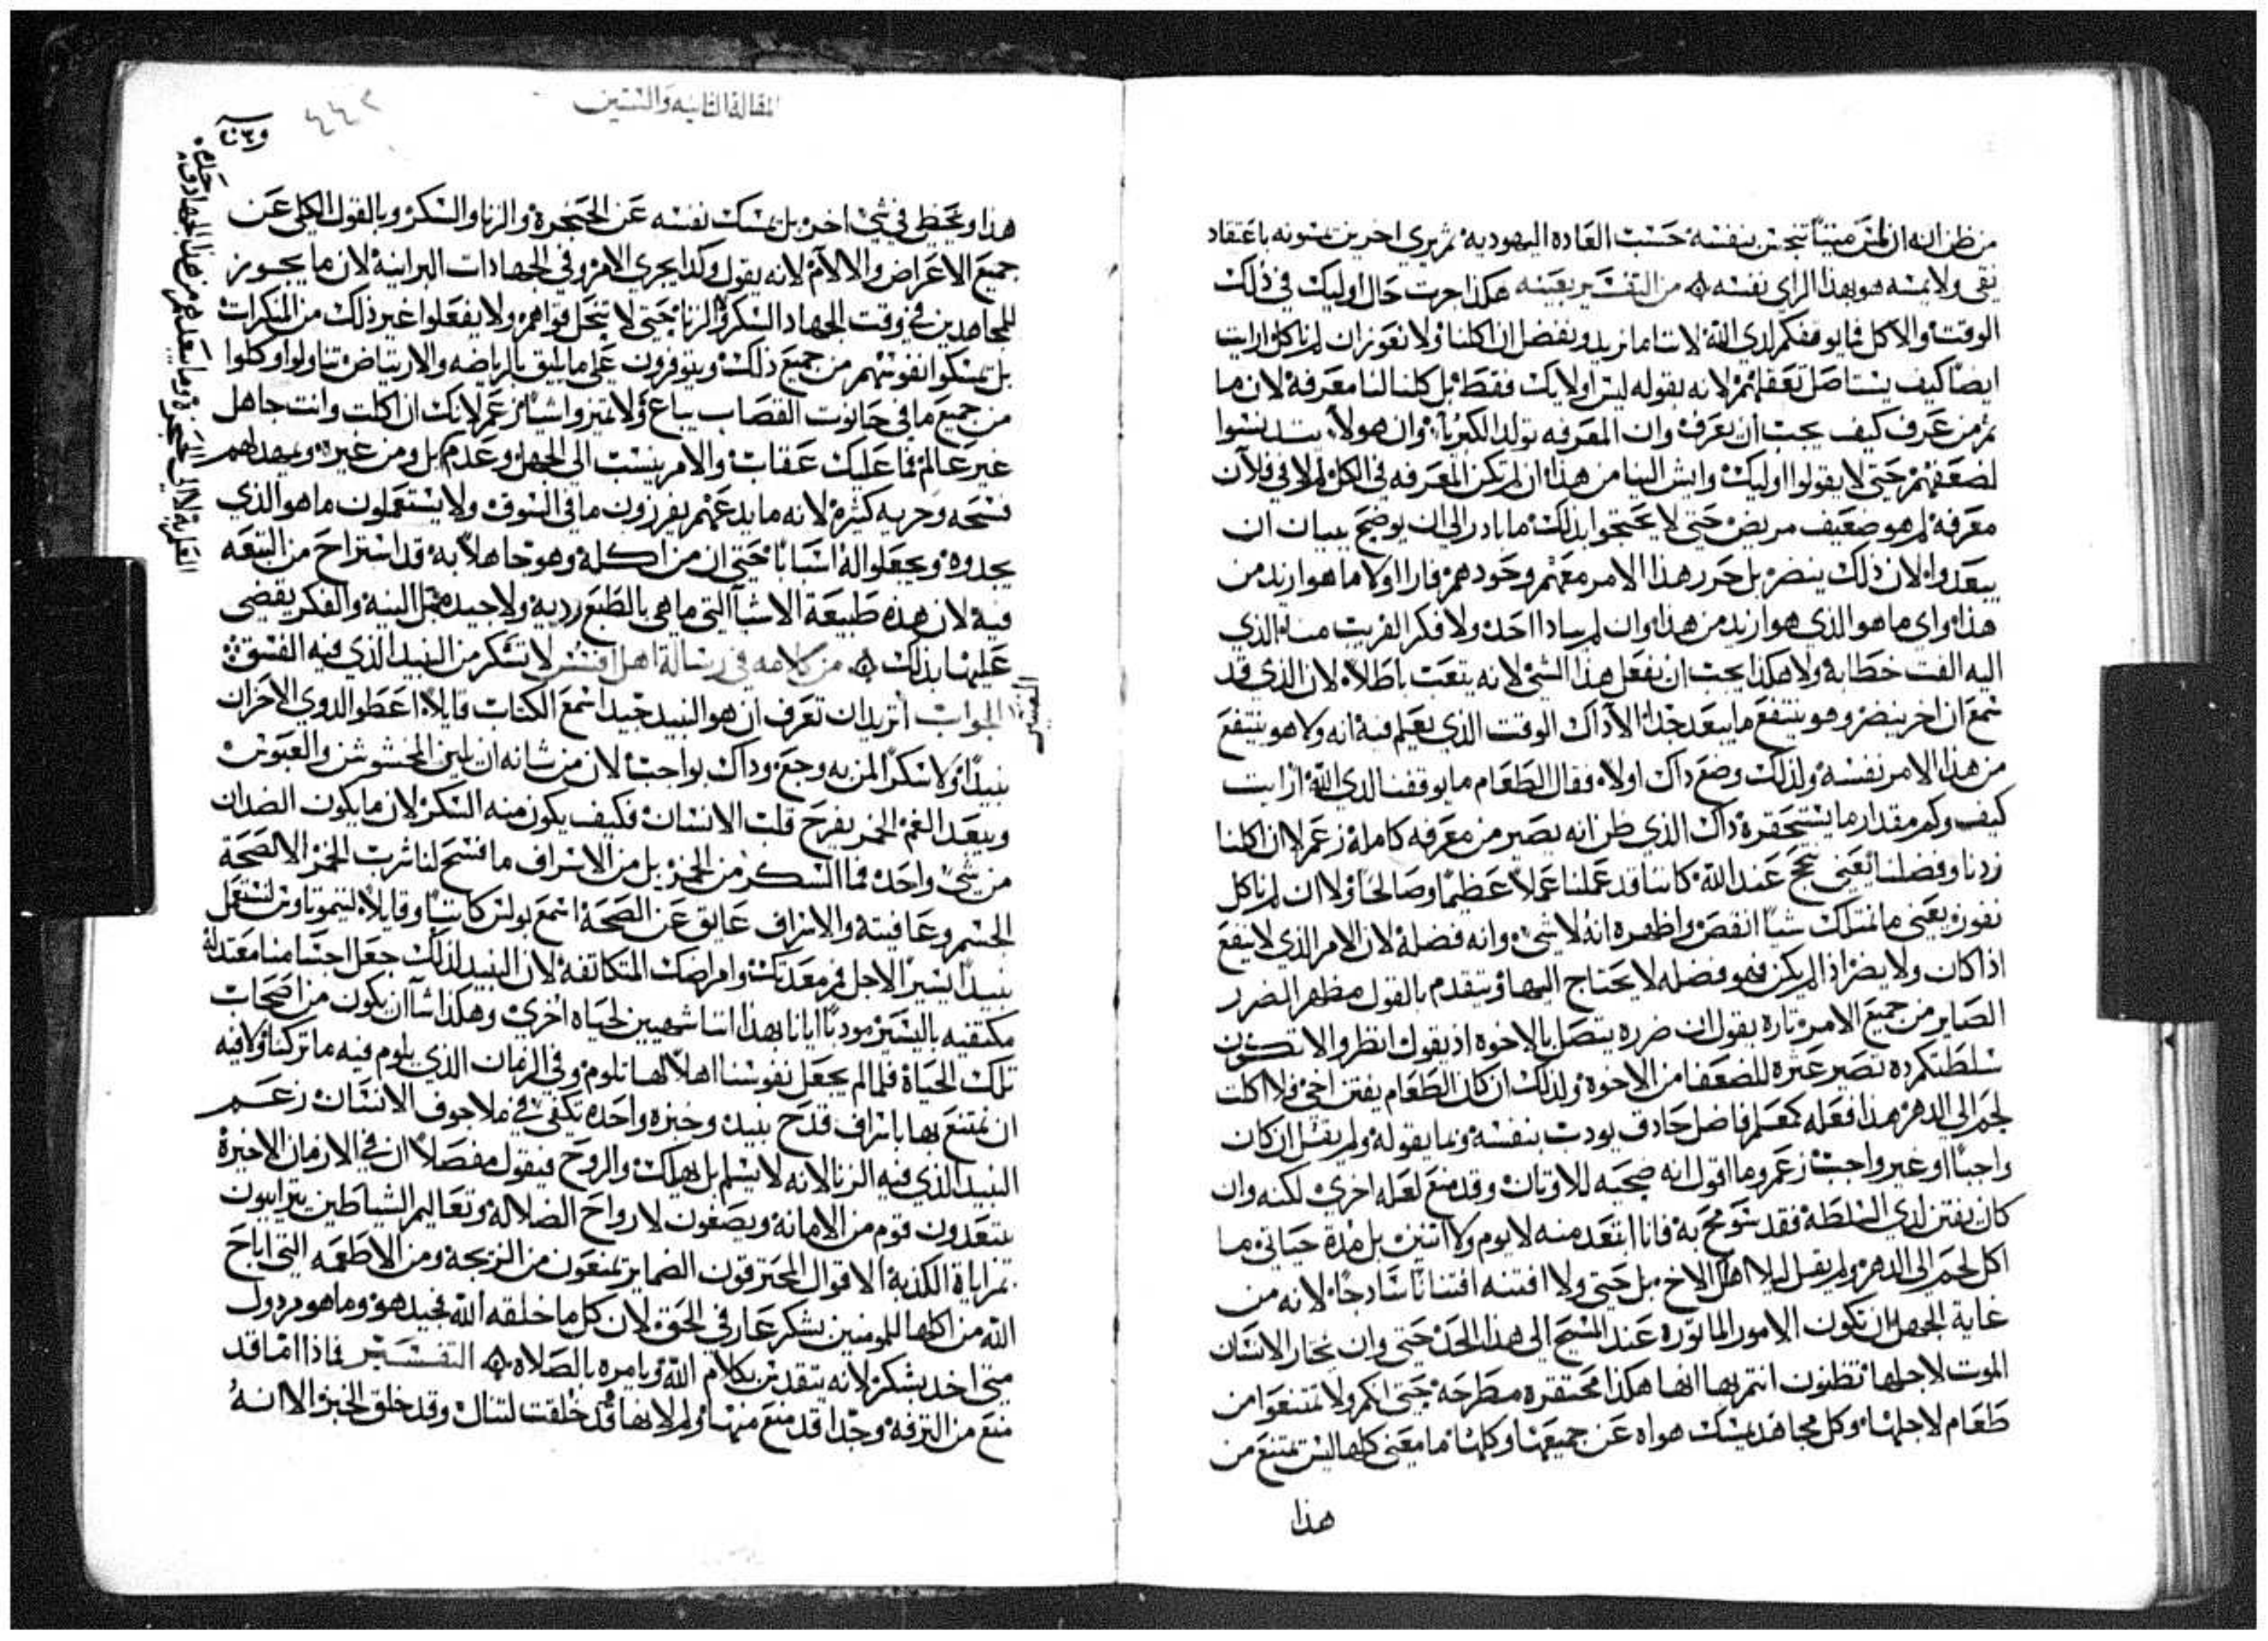 من ظن انه ان لمس ميتاً تنجس بنفسه حسب العاده اليهوديه ثم يرى اخرين يمسونه باعتقاد
نقى ولا يمسه هو بهذا الراى نفسه من التفسير بعينه هكذا جرت حال اوليك في ذلك
الوقت والاكل فما يوقفكم لدى الله لاننا ما نزيد ونفضل ان اكلنا ولا نعوز ان لم ناكل ارايت
ايضاً كيف يستاصل تعقلهم لانه بقوله ليس اوليك فقط بل كلنا لنا معرفه لان ما
ثم من عرف كيف يجب ان يعرف وان المعرفه تولد الكبريآ وان هولآ
لضعفهم حتى لا يقولوا اوليك وايش الينا من هذا ان لم تكن المعرفه في الكل لم لا في فلان
معرفه لم هو ضعيف مريض حتى لا يحتجوا بذلك ما بادر الى ان يوضح ببيان ان
يبعدوا لان ذلك ينضر بل حرر هذا الامر معهم وجود همزفارا اولا ما هو ازيد من
هذا واى ما هو الذي هو ازيد من هذا وان لم يبيدا احد ولا فكر القريب منا الذي
اليه الفت خطابه ولا هكذا يجب ان يفعل هذا الشي لانه يتعب باطلاً لان الذي قد
سمع ان اخر ينضر وهو ينتفع ما يبعد جداً الا ذاك الوقت الذي يعلم فيه انه ولا هو ينتفع
من هذا الامر نفسه ولذلك وضع ذاك اولا فقال الطعام ما يوقفنا لدى الله ارايت
كيف وكم مقدار ما يستحقره ذاك الذي ظن انه يصير من معرفه كامله زعم لا ان اكلنا
زدنا وفضلنا يعني نجح عند الله كاننا قد عملنا عملاً عظيماً وصالحاً ولا ان لم ناكل
نعوز يعني ما نمتلك شياً انقص واظهره انه لا شي وانه فضلة لان الامر الذي لا ينفع
اذا كان ولا يضر اذا لم يكن فهو فضله لا يحتاج اليها ويتقدم بالقول مظهر الضرر
الصاير من جميع الامر تاره يقول ان ضرره يتصل بالاخوه اذ يقول انظروا الا تكون
سلطتكم ده تصير عثره للضعفا من الاخوه ولذلك ان كان الطعام يفتن اخي فلا اكلت
لحم الى الدهر هذا فعله كمعلم فاضل حادق يودب بنفسه وبما يقوله ولم يقل ان كان
واجباً او غير واجب زعم وما اقول انه ضحيه للاوثان وقد منع لعله اخرى لكنه وان
كان يفتن لدى السلطه فقد سومح به فانا ابتعد منه لا يوم ولا اثنين بل مدة حياتى ما
اكل لحم الى الدهر ولم يقل ليلا اهلك الاخ بل حتى ولا افتنه افتناناً شاذجاً لانه من
غاية الجهل ان تكون الامور الماثوره عند المسيح الى هذا الحد حتى وان يختار الانسان
الموت لاجلها تظنون انتم بها انها هكذا محتقره مطرحه حتى انكم ولا تمتنعوا من
طعام لاجلها وكل مجاهد يمسك هواه عن جميعها وكلها ما معنى كلها ليس يمتنع من
هذا
المقالة الثانيه والستين
٤٤٢
هذا ويخطى في شي اخر بل يمسك نفسه عن الحنجرة والزنا والسكر وبالقول الكلي عن
جميع الاعراض والالام لانه يقول وكذا يجرى الامر وفي الجهادات البرانيه لان ما يجوز
للمجاهدين في وقت الجهاد السكر والزنا حتى لا تنحل قواهم ولا يفعلوا غير ذلك من المنكرات
بل يمسكوا نفوسهم من جميع ذلك ويتوفرون على ما يليق بالرياضه والارتياض تناولوا وكلوا
من جميع ما في حانوت القصاب يباع ولا تميزوا شياً زعم لانك ان اكلت وانت جاهل
غير عالم فما عليك عقاب والامر ينسب الى الجهل وعدم بل ومن غيره ويمد لهم
فسحه وحريه كثيره لانه ما يدعهم يفرزون ما في السوق ولا يستعملون ما هو الذي
يجدوه ويجعلوا له اسباباً حتى ان من اكله وهو جاهلاً به قد استراح من التبعه
فيه لان هذه طبيعة الاشيآ التي ما هي بالطبع رديه ولا جيده مثل النيه والفكر يقضي
عليها بذلك من كلامه في رسالة اهل افسس لا تسكر من النبيد الذي فيه الفسق
الجواب أتريد ان تعرف ان هو النبيد جيد اسمع الكتاب قايلاً اعطوا لدوي الاحزان
نبيداً ولا سكراً لمن به وجع وداك بواجب لان من شانه ان يلين المخشوشن والعبوس
ويبعد الغم الخمر يفرح قلب الانسان فكيف يكون منه السكر لان ما يكون الضدان
من شي واحد فما السكر من الخمر بل من الاسراف ما فسح لنا شرب الخمر الا لصحة
الجسم وعافيته والاسراف عايق عن الصحة اسمع بولس كاتباً وقايلاً لتيموتاوس استعمل
نبيداً يسيراً لاجل فم معدتك وامراضك المتكاتفه لان النبيد لذلك جعل اجسامنا معتدلة
مكتفيه باليسير مودباً ايانا بهذا اننا شهيين لحياه اخرى وهكذا شآ ان يكون من اصحاب
تلك الحياة فلما لم يجعل نفوسنا اهلاً لها نلوم وفي الزمان الذي يلوم فيه ما تركنا ولا فيه
ان نمتنع بها باسراف قدح نبيد وخبزه واحده تكفي في ملا جوف الانسان زعم
النبيد الذي فيه الزنا لانه لا يسلم بل يهلك والروح فيقول مفصلاً ان في الازمان الاخيرة
يبتعدون قوم من الامانه ويصغون لارواح الضلاله وتعاليم الشياطين يترايون
بمراياة الكذبة الاقوال المحترقون الضماير يمنعون من الزيجه ومن الاطعمه التي اباح
الله من اكلها للمومنين بشكر عارفي الحق لان كل ما خلقه الله فجيد هو وما هو مردول
متى اخد بشكر لانه يتقدس بكلام الله ويامره بالصلاه التفسير فماذا اما قد
منع من الترفه وجداً قد منع منها ولم لانها قد خلقت لتنال وقد خلق الخبز الا انهُ